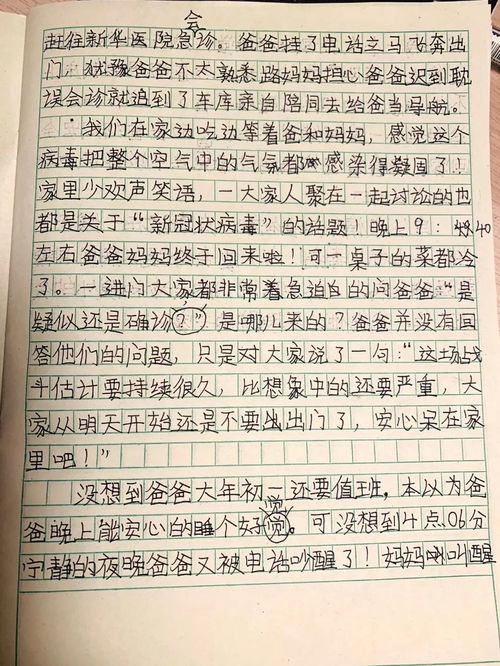 会
赶往新华医院急诊。爸爸挂了电话立马飞奔出
门，犹豫爸爸不太熟悉路妈妈担心爸爸迟到耽
误会诊就追到了车库亲自陪同去给爸当导航。
我们在家边吃边等着爸和妈妈，感觉这个
病毒把整个空气中的气氛都感染得凝固了！
家里少欢声笑语，一大家人聚在一起讨论的也
都是关于“新冠状病毒”的话题！晚上9：40
左右爸爸妈妈终于回来啦！可一桌子的菜都冷
了。一进门大家都非常着急迫自的问爸爸“是
疑似还是确诊？”是哪儿来的？爸爸并没有回
答他们的问题，只是对大家说了一句：“这场战
斗估计要持续很久，比想象中的还要严重，大
家从明天开始还是不要出出门了，安心呆在家
里吧！”
没想到爸爸大年初一还要值班，本以为爸
爸晚上能安心的睡个好觉。可没想到4点06分
宁静的夜晚爸爸又被电话吵醒了！妈妈叫醒